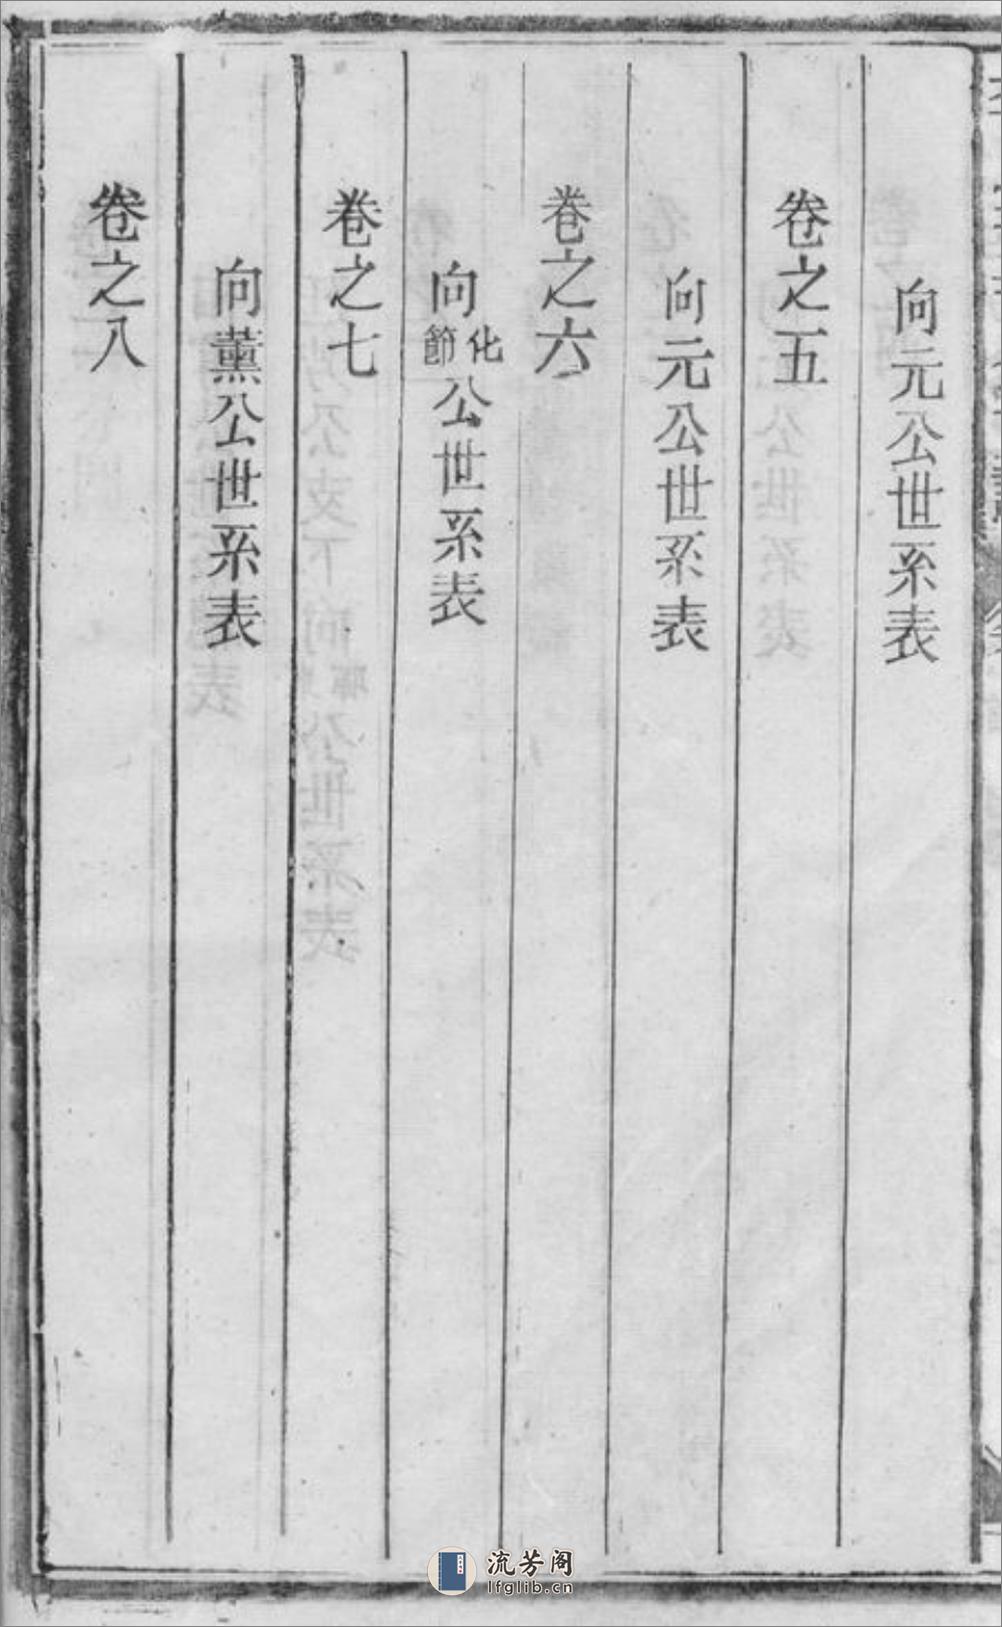 向元公世系表
卷之五
向元公世系表
卷之六
向化節公世系表
卷之七
向薰公世系表
卷之八
流芳阁
lfglib.cn